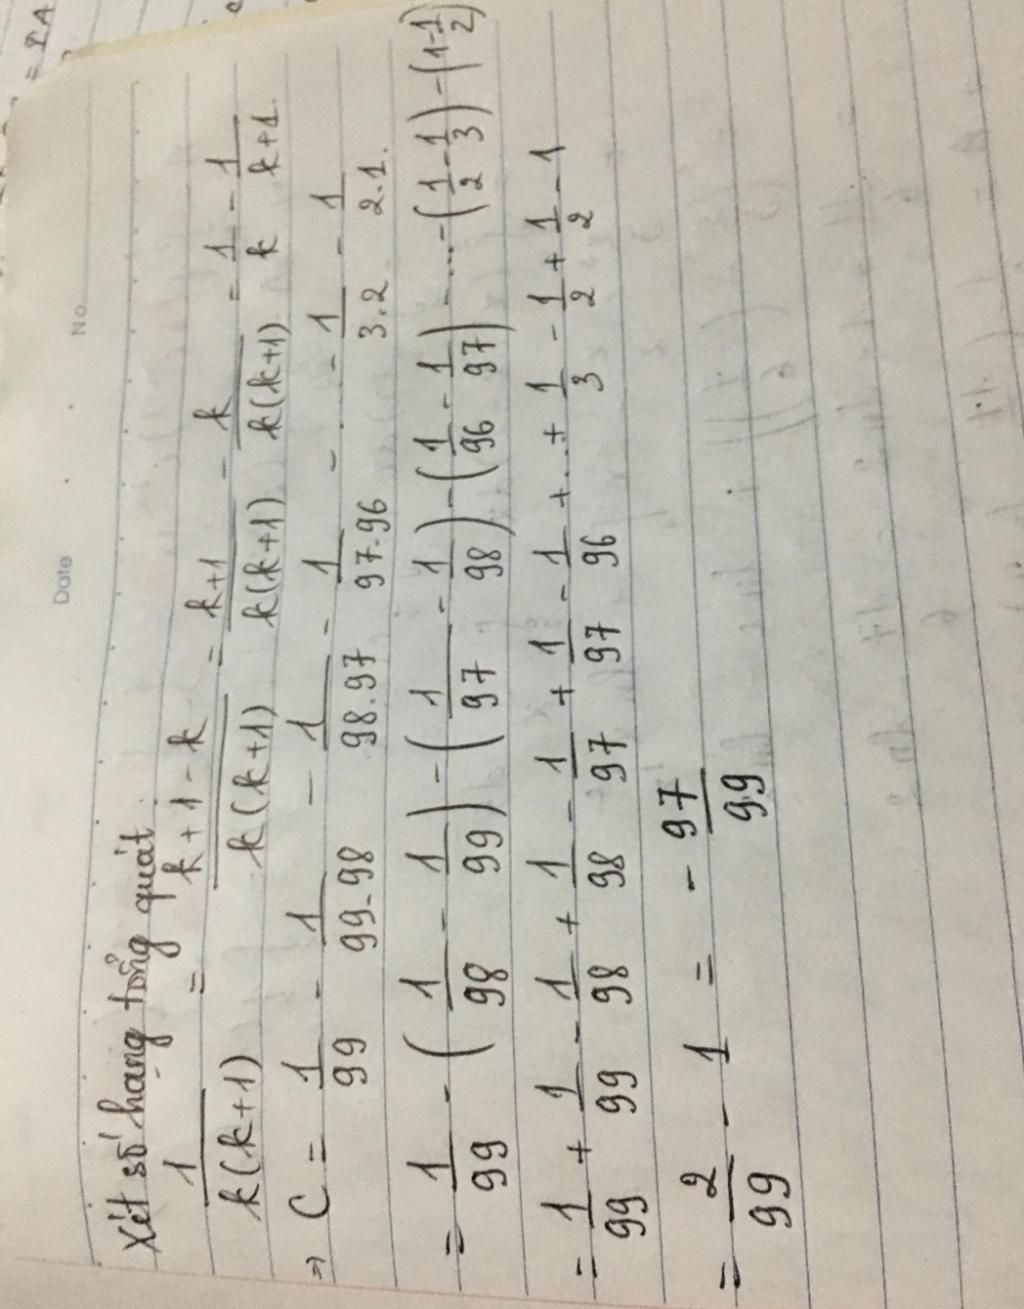 Date No.
Xét số hạng tổng quát
1/k(k+1) = k+1-k/k(k+1) = k+1/k(k+1) - k/k(k+1) = 1/k - 1/k+1
⇒ C = 1/99 - 1/99.98 - 1/98.97 - 1/97.96 - ... - 1/3.2 - 1/2.1.
= 1/99 - (1/98 - 1/99) - (1/97 - 1/98) - (1/96 - 1/97) - ... - (1/2 - 1/3) - (1 - 1/2)
= 1/99 + 1/99 - 1/98 + 1/98 - 1/97 + 1/97 - 1/96 + ... + 1/3 - 1/2 + 1/2 - 1
= 2/99 - 1 = - 97/99